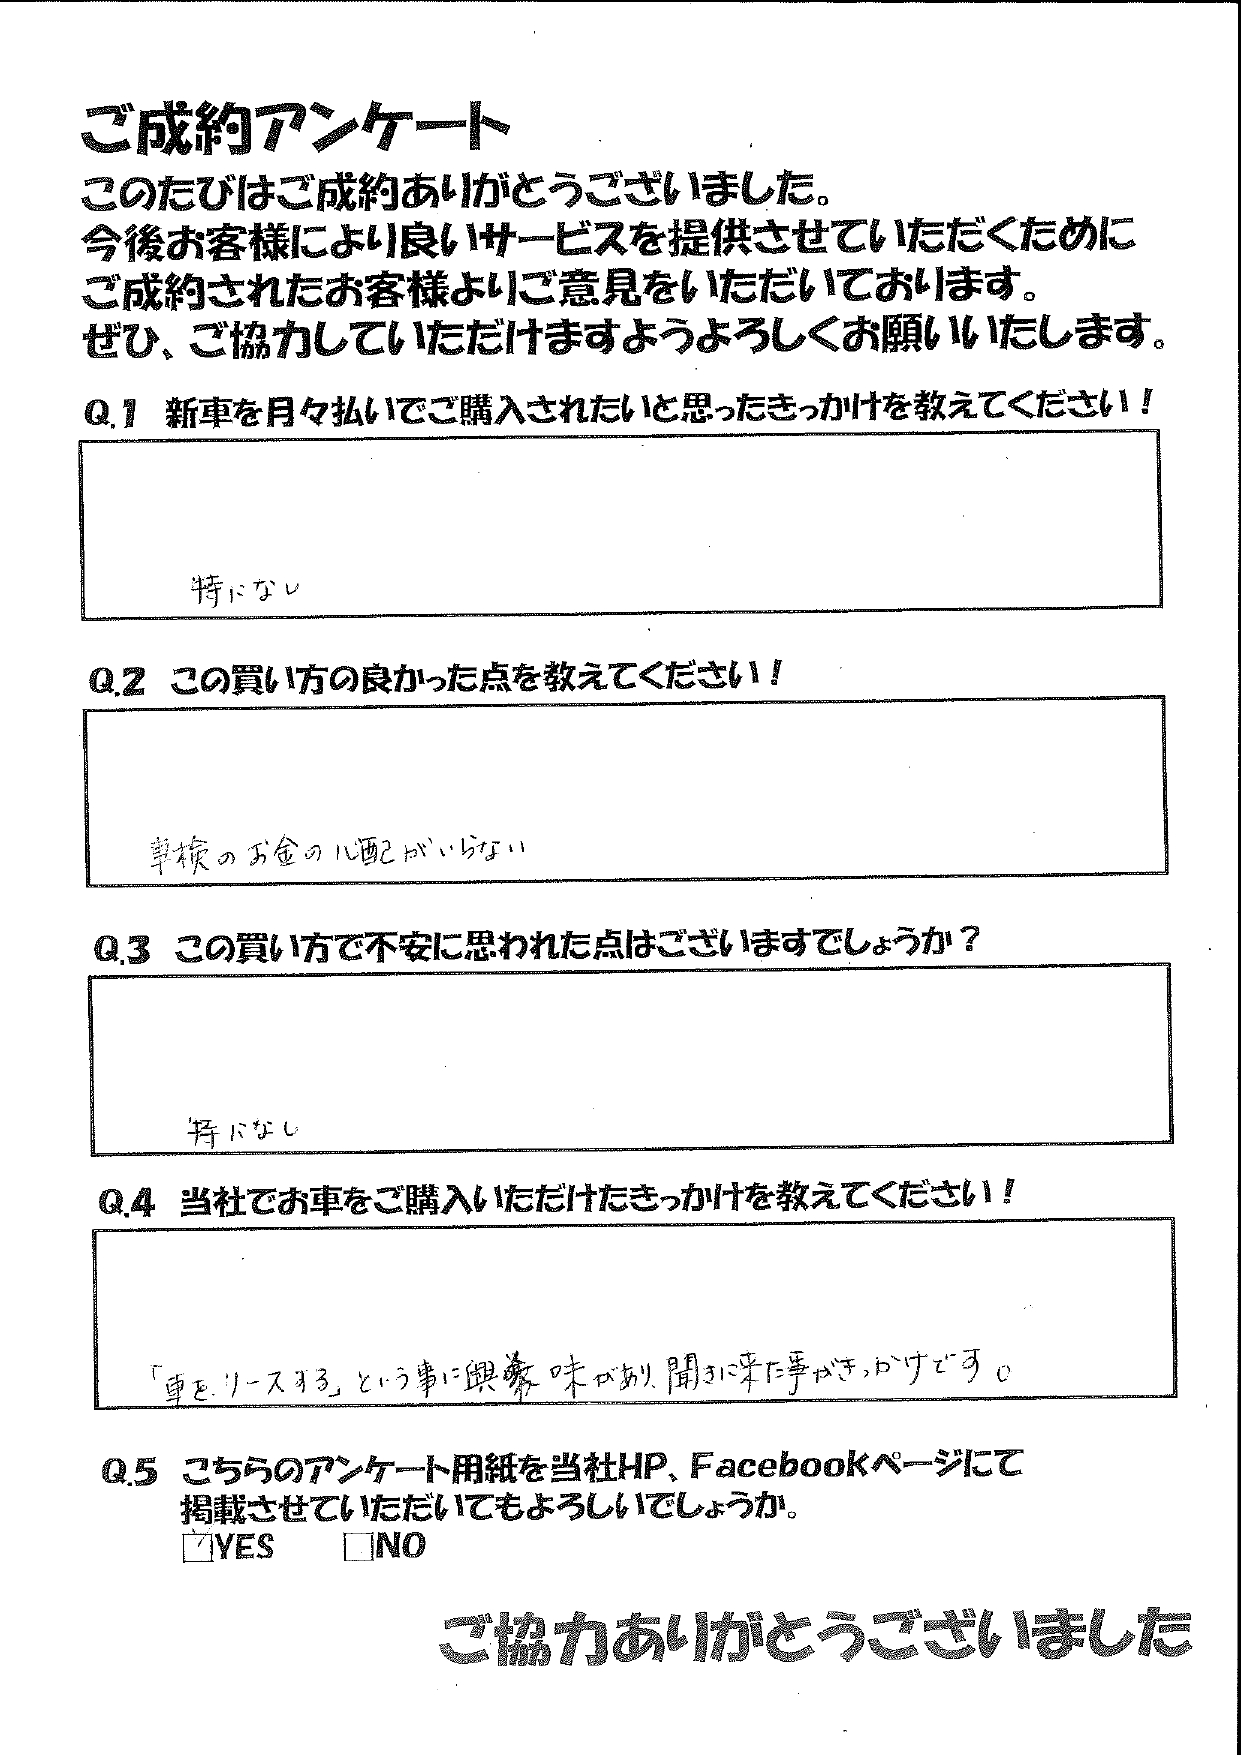 ご成約アンケート
このたびはご成約ありがとうございました。
今後お客様により良いサービスを提供させていただくために
ご成約されたお客様よりご意見をいただいております。
ぜひ、ご協力していただけますようよろしくお願いいたします。
Q.1 新車を月々払いでご購入されたいと思ったきっかけを教えてください！
特になし
Q.2 この買い方の良かった点を教えてください！
車検のお金の心配がいらない
Q.3 この買い方で不安に思われた点はございますでしょうか？
特になし
Q.4 当社でお車をご購入いただけたきっかけを教えてください！
「車をリースする」という事に興味があり、聞きに来た事がきっかけです。
Q.5 こちらのアンケート用紙を当社HP、Facebookページにて
掲載させていただいてもよろしいでしょうか。
☑YES □NO
ご協力ありがとうございました